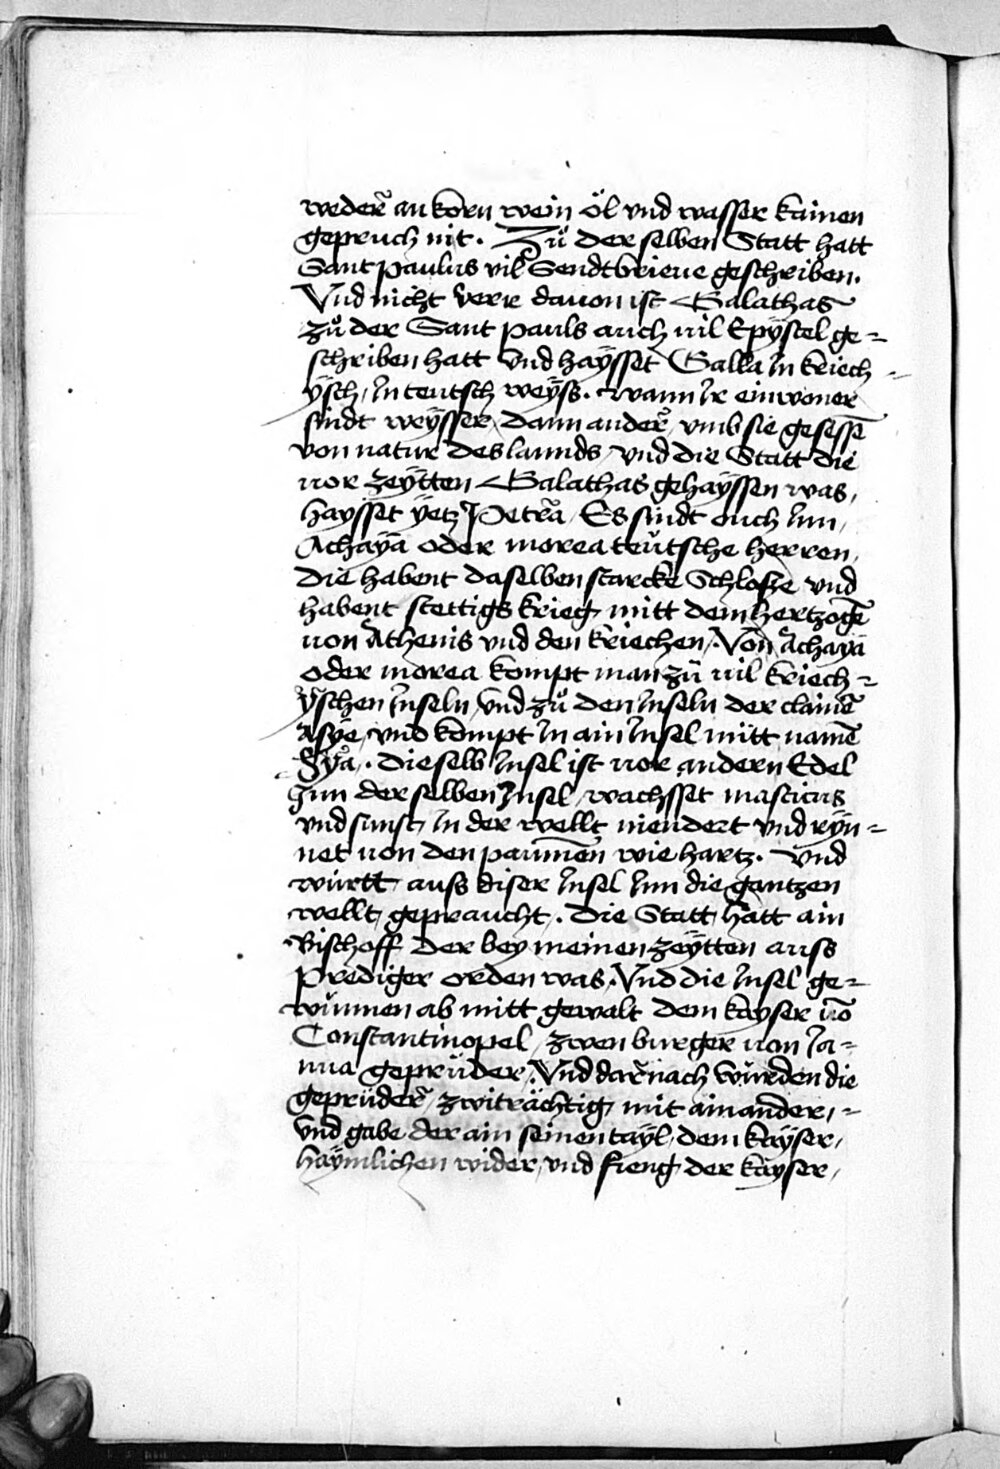 weder an korn wein öl vnd wasser kainen
gepruch nit. Zů der selben Statt hatt
Sant Paulus vil Sendtbrieue geschriben.
Vnd nicht verr dauon ist Galathas
zů der Sant Pauls auch uil Epÿstel ge=
schriben hatt vnd haÿsset Galla In kriech=
ÿsch, In teutsch weÿss. wann Ir einwoner
sindt weÿsser, dann ander, vmb sie gesessē
von natur des lannds, vnd die Statt die
uor zeÿtten Galathas gehaÿssen was,
haÿsset ÿetz Petra, Es sindt ouch Inn,
Achaÿa oder morea teutsche herren,
die habent daselben starcke Schlosse vnd
habent stettigs krieg, mitt dem hertzogē
uon Athenis vnd den kriechen, Von Achaÿa
oder morea kompt man zů uil kriech=
ÿschen Inseln, vnd zů den Inseln der clainē
Asÿe, vnd kompt In ain Insel mitt namē
Sÿa. die selb Insel ist uor andern Edel
Inn der selben Insel, wachsset masticus
vnd sunst, In der wellt niendert vnd rÿn=
net uon den paumen wie hartz. Vnd
württ auss diser Insel Inn die gantzen
wellt, gepraucht. die Statt hatt ain
Bischoff der bey meinen zeÿtten auss
Prediger orden was, Vnd die Insel ge=
wunnen ab mitt gewalt dem kayser uō
Constantinopel, zwen burger uon Ia=
nua gepruder, Vnd darnach würden die
gepruder, zwiträchtig, mit ainander,=
vnd gabe der ain seinen taÿl, dem kaÿser,
haÿmlichen wider, vnd fieng der kayser,